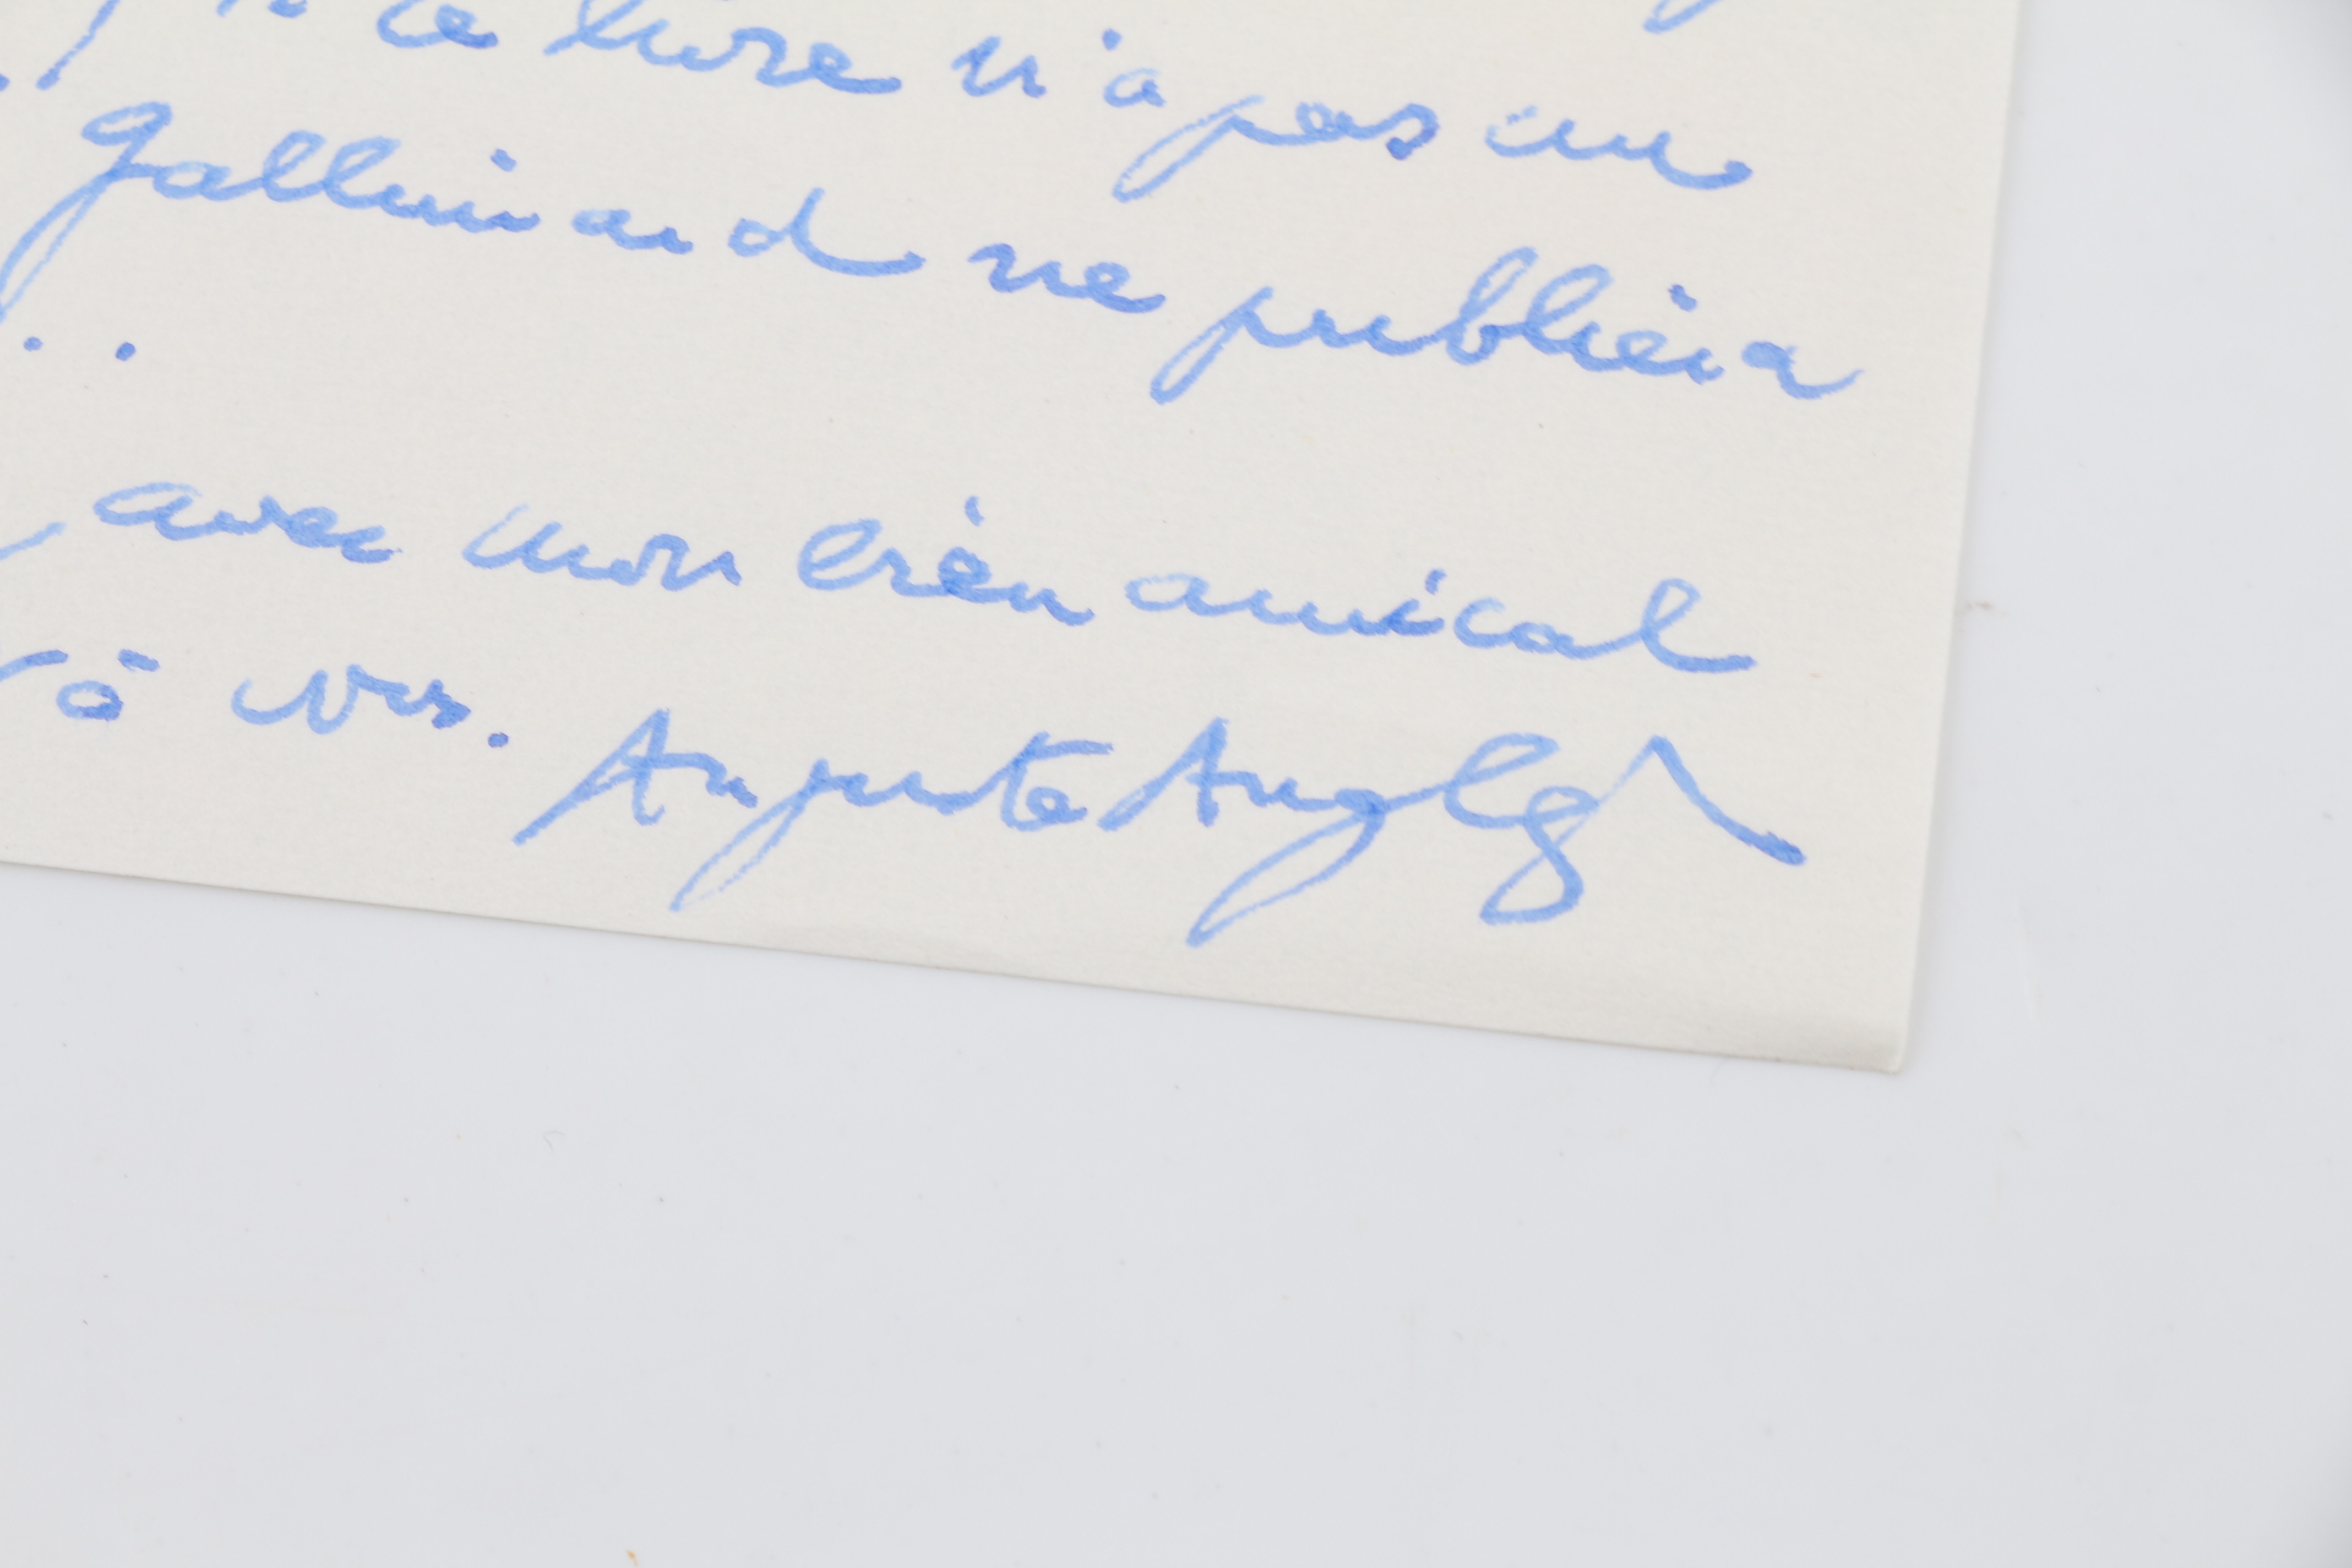 ce livre n'a pas un
Gallimard ne publiera
..
avec mon bien amical
à vous.
Auguste Anglès